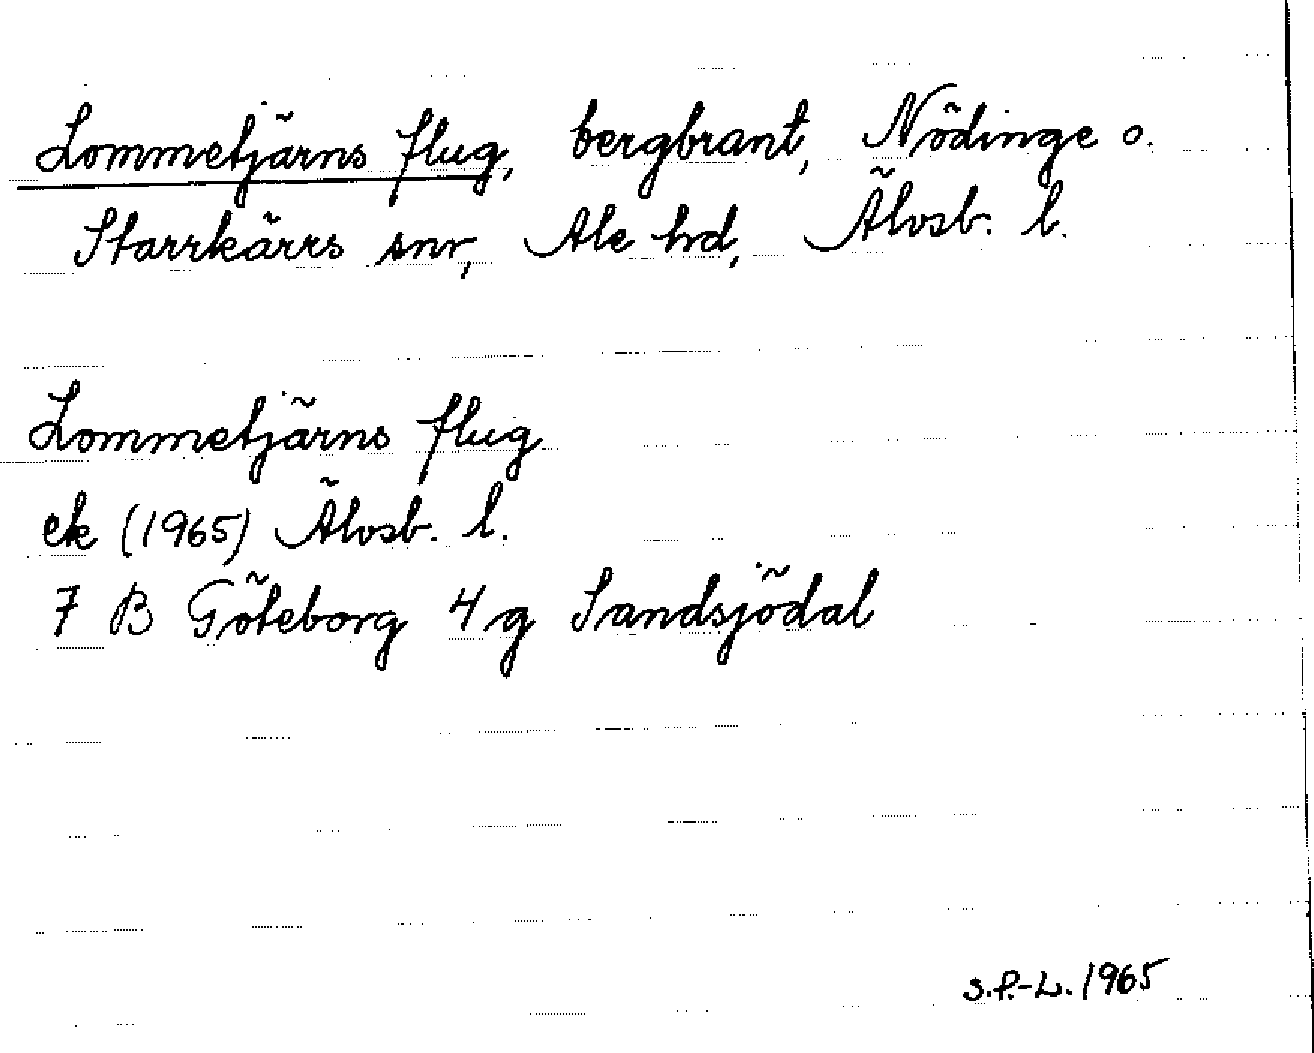 Lommetjärns flug, bergbrant, Nödinge o.
Starrkärrs snr, Ale hd, Älvsb. l.
Lommetjärns flug
ek (1965) Älvsb. l.
7 B Göteborg 4 g Sandsjödal
S.P.-L. 1965